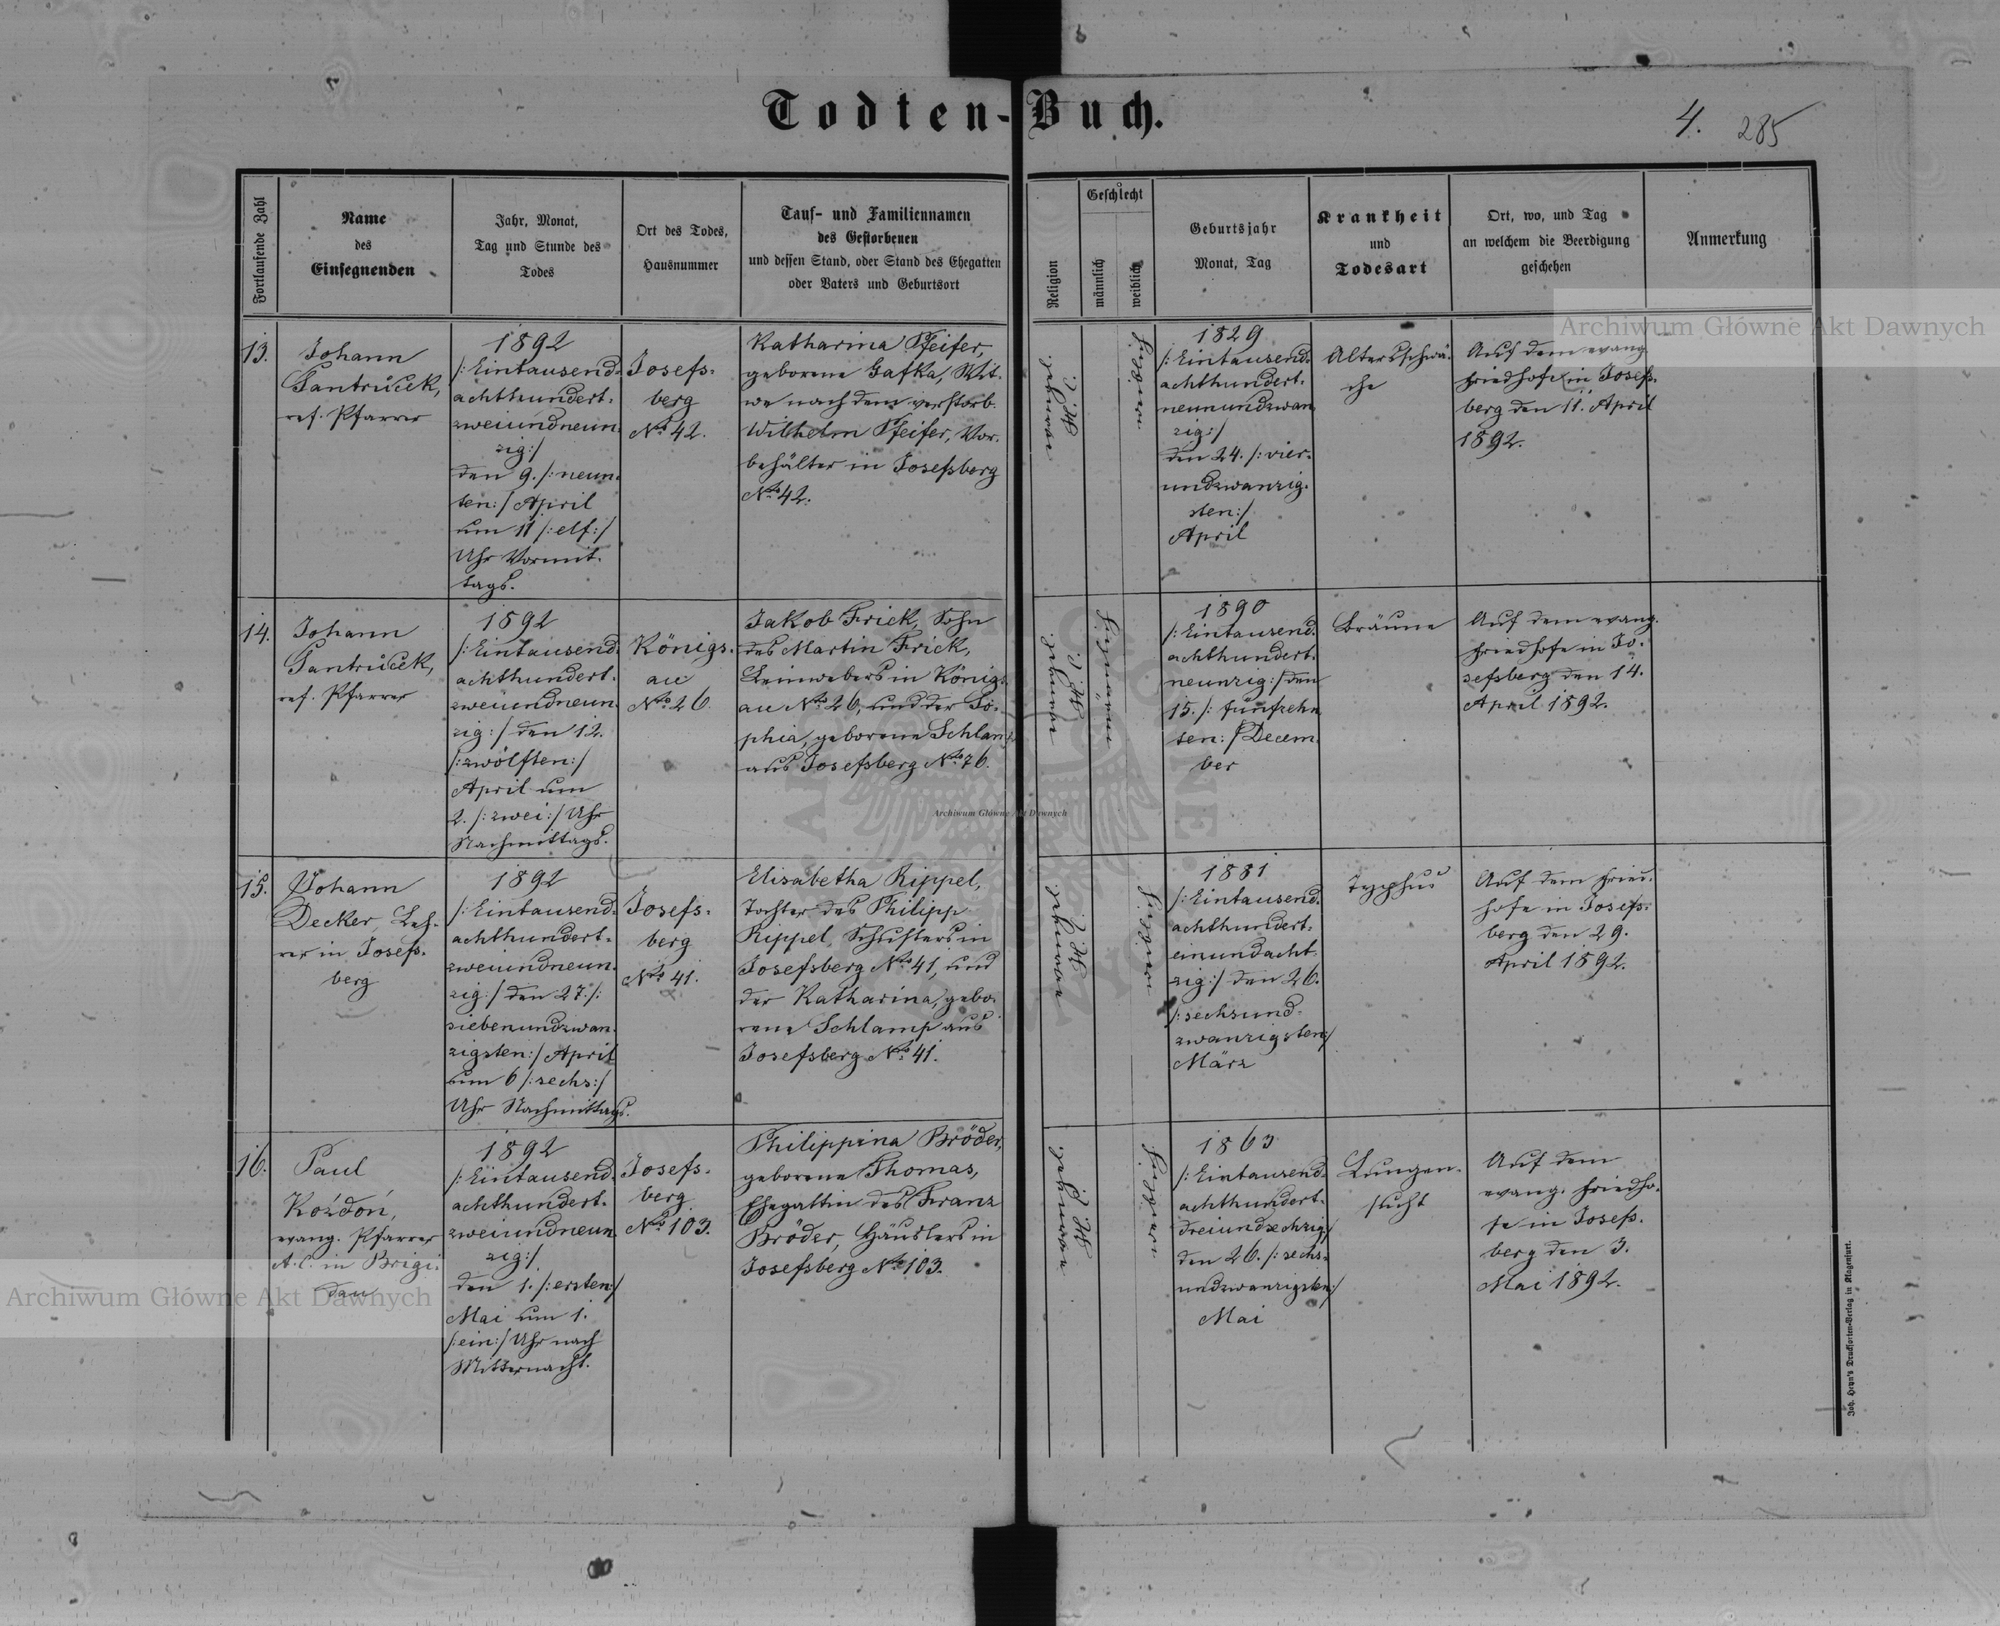 Todten-Buch.
4. 285
Fortlaufende Zahl
Name
des
Einsegnenden
Jahr, Monat,
Tag und Stunde des
Todes
Ort des Todes,
Hausnummer
Tauf- und Familiennamen
des Gestorbenen
und dessen Stand, oder Stand des Ehegatten
oder Vaters und Geburtsort
Religion
Geschlecht
männlich
weiblich
Geburtsjahr
Monat, Tag
Krankheit
und
Todesart
Ort, wo, und Tag
an welchem die Beerdigung
geschehen
Anmerkung
13.
Johann
Jantrůček,
ref. Pfarrer
1892
/:Eintausend-
achthundert-
zweiundneun-
zig:/
den 9. /:neun-
ten:/ April
um 11 /:elf:/
Uhr Vormit-
tags.
Josefs-
berg
Nro 42.
Katharina Pfeifer,
geborene Gafka, Wit-
we nach dem verstorb.
Wilhelm Pfeifer, Vor-
behälter in Josefsberg
Nro 42.
1829
/:Eintausend-
achthundert-
neunundzwan-
zig:/
den 24. /:vier-
undzwanzig-
sten:/
April
Altersschwä-
che
Auf dem evang.
Friedhofe in Josefs-
berg den 11. April
1892.
14.
Johann
Jantrůček,
ref. Pfarrer
1892
/:Eintausend-
achthundert-
zweiundneun-
zig:/ den 12.
/:zwölften:/
April um
2. /:zwei:/ Uhr
Nachmittags.
Königs-
au
Nro 26.
Jakob Frick, Sohn
des Martin Frick,
Leinwebers in Königs-
au Nro 26, und der So-
phia, geborene Schlamp
aus Josefsberg Nro 76.
1890
/:Eintausend-
achthundert-
neunzig:/ den
15. /:fünfzehn-
ten:/ Decem-
ber
Bräune
Auf dem evang.
Friedhofe in Jo-
sefsberg den 14.
April 1892.
15.
Johann
Decker, Leh-
rer in Josefs-
berg
1892
/:Eintausend-
achthundert-
zweiundneun-
zig:/ den 27. /:
siebenundzwan-
zigsten:/ April
um 6 /:sechs:/
Uhr Nachmittags.
Josefs-
berg
Nro 41.
Elisabetha Rippel,
Tochter des Philipp
Rippel, Schusters in
Josefsberg Nro 41, und
der Katharina, gebo-
rene Schlamp aus
Josefsberg Nro 41.
1881
/:Eintausend-
achthundert-
einundacht-
zig:/ den 26.
/:sechsund-
zwanzigsten:/
März
Typhus
Auf dem Fried-
hofe in Josefs-
berg den 29.
April 1892.
16.
Paul
Kożdoń,
evang. Pfarrer
A. C. in Brigi-
dau
1892
/:Eintausend-
achthundert-
zweiundneun-
zig:/
den 1. /:ersten:/
Mai um 1.
/:ein:/ Uhr nach
Mitternacht.
Josefs-
berg
Nro 103.
Philippina Bröder,
geborene Thomas,
Ehegattin des Franz
Bröder, Häuslers in
Josefsberg Nro 103.
1863
/:Eintausend-
achthundert-
dreiundsechzig:/
den 26. /:sechs-
undzwanzigsten:/
Mai
Lungen-
sucht
Auf dem
evang. Friedho-
fe in Josefs-
berg den 3.
Mai 1892.
Joh. Heyn's Drucksorten-Verlag in Klagenfurt.
Archiwum Główne Akt Dawnych
Archiwum Główne Akt Dawnych
Archiwum Główne Akt Dawnych